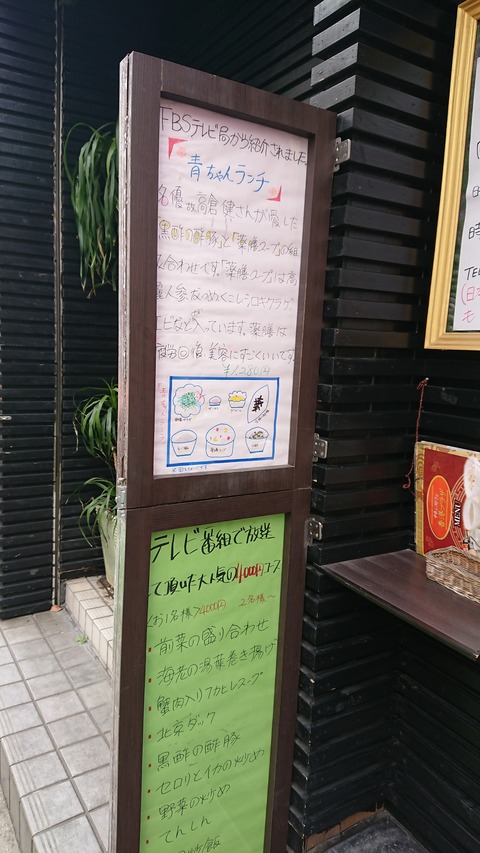 FBSテレビ局から紹介されました。
青ちゃんランチ
名優故高倉健さんが愛した
黒酢の酢豚」と「薬膳スープ」の組
み合わせです。「薬膳スープ」は高
麗人参、なつめ、くこ、レンコン、キクラゲ
エビなど入っています。薬膳は
疲労回復、美容にすごくいいです
¥1,280円
テレビ番組で放送
して頂いた大人気の4000円コース
(お1名様)4000円 2名様〜
・前菜の盛り合わせ
・海老の湯葉巻き揚げ
・蟹肉入りフカヒレスープ
・北京ダック
・黒酢の酢豚
・セロリとイカの炒め
・野菜の炒め
・てんしん
炒飯
MENU
時
時
TEL
(日
も